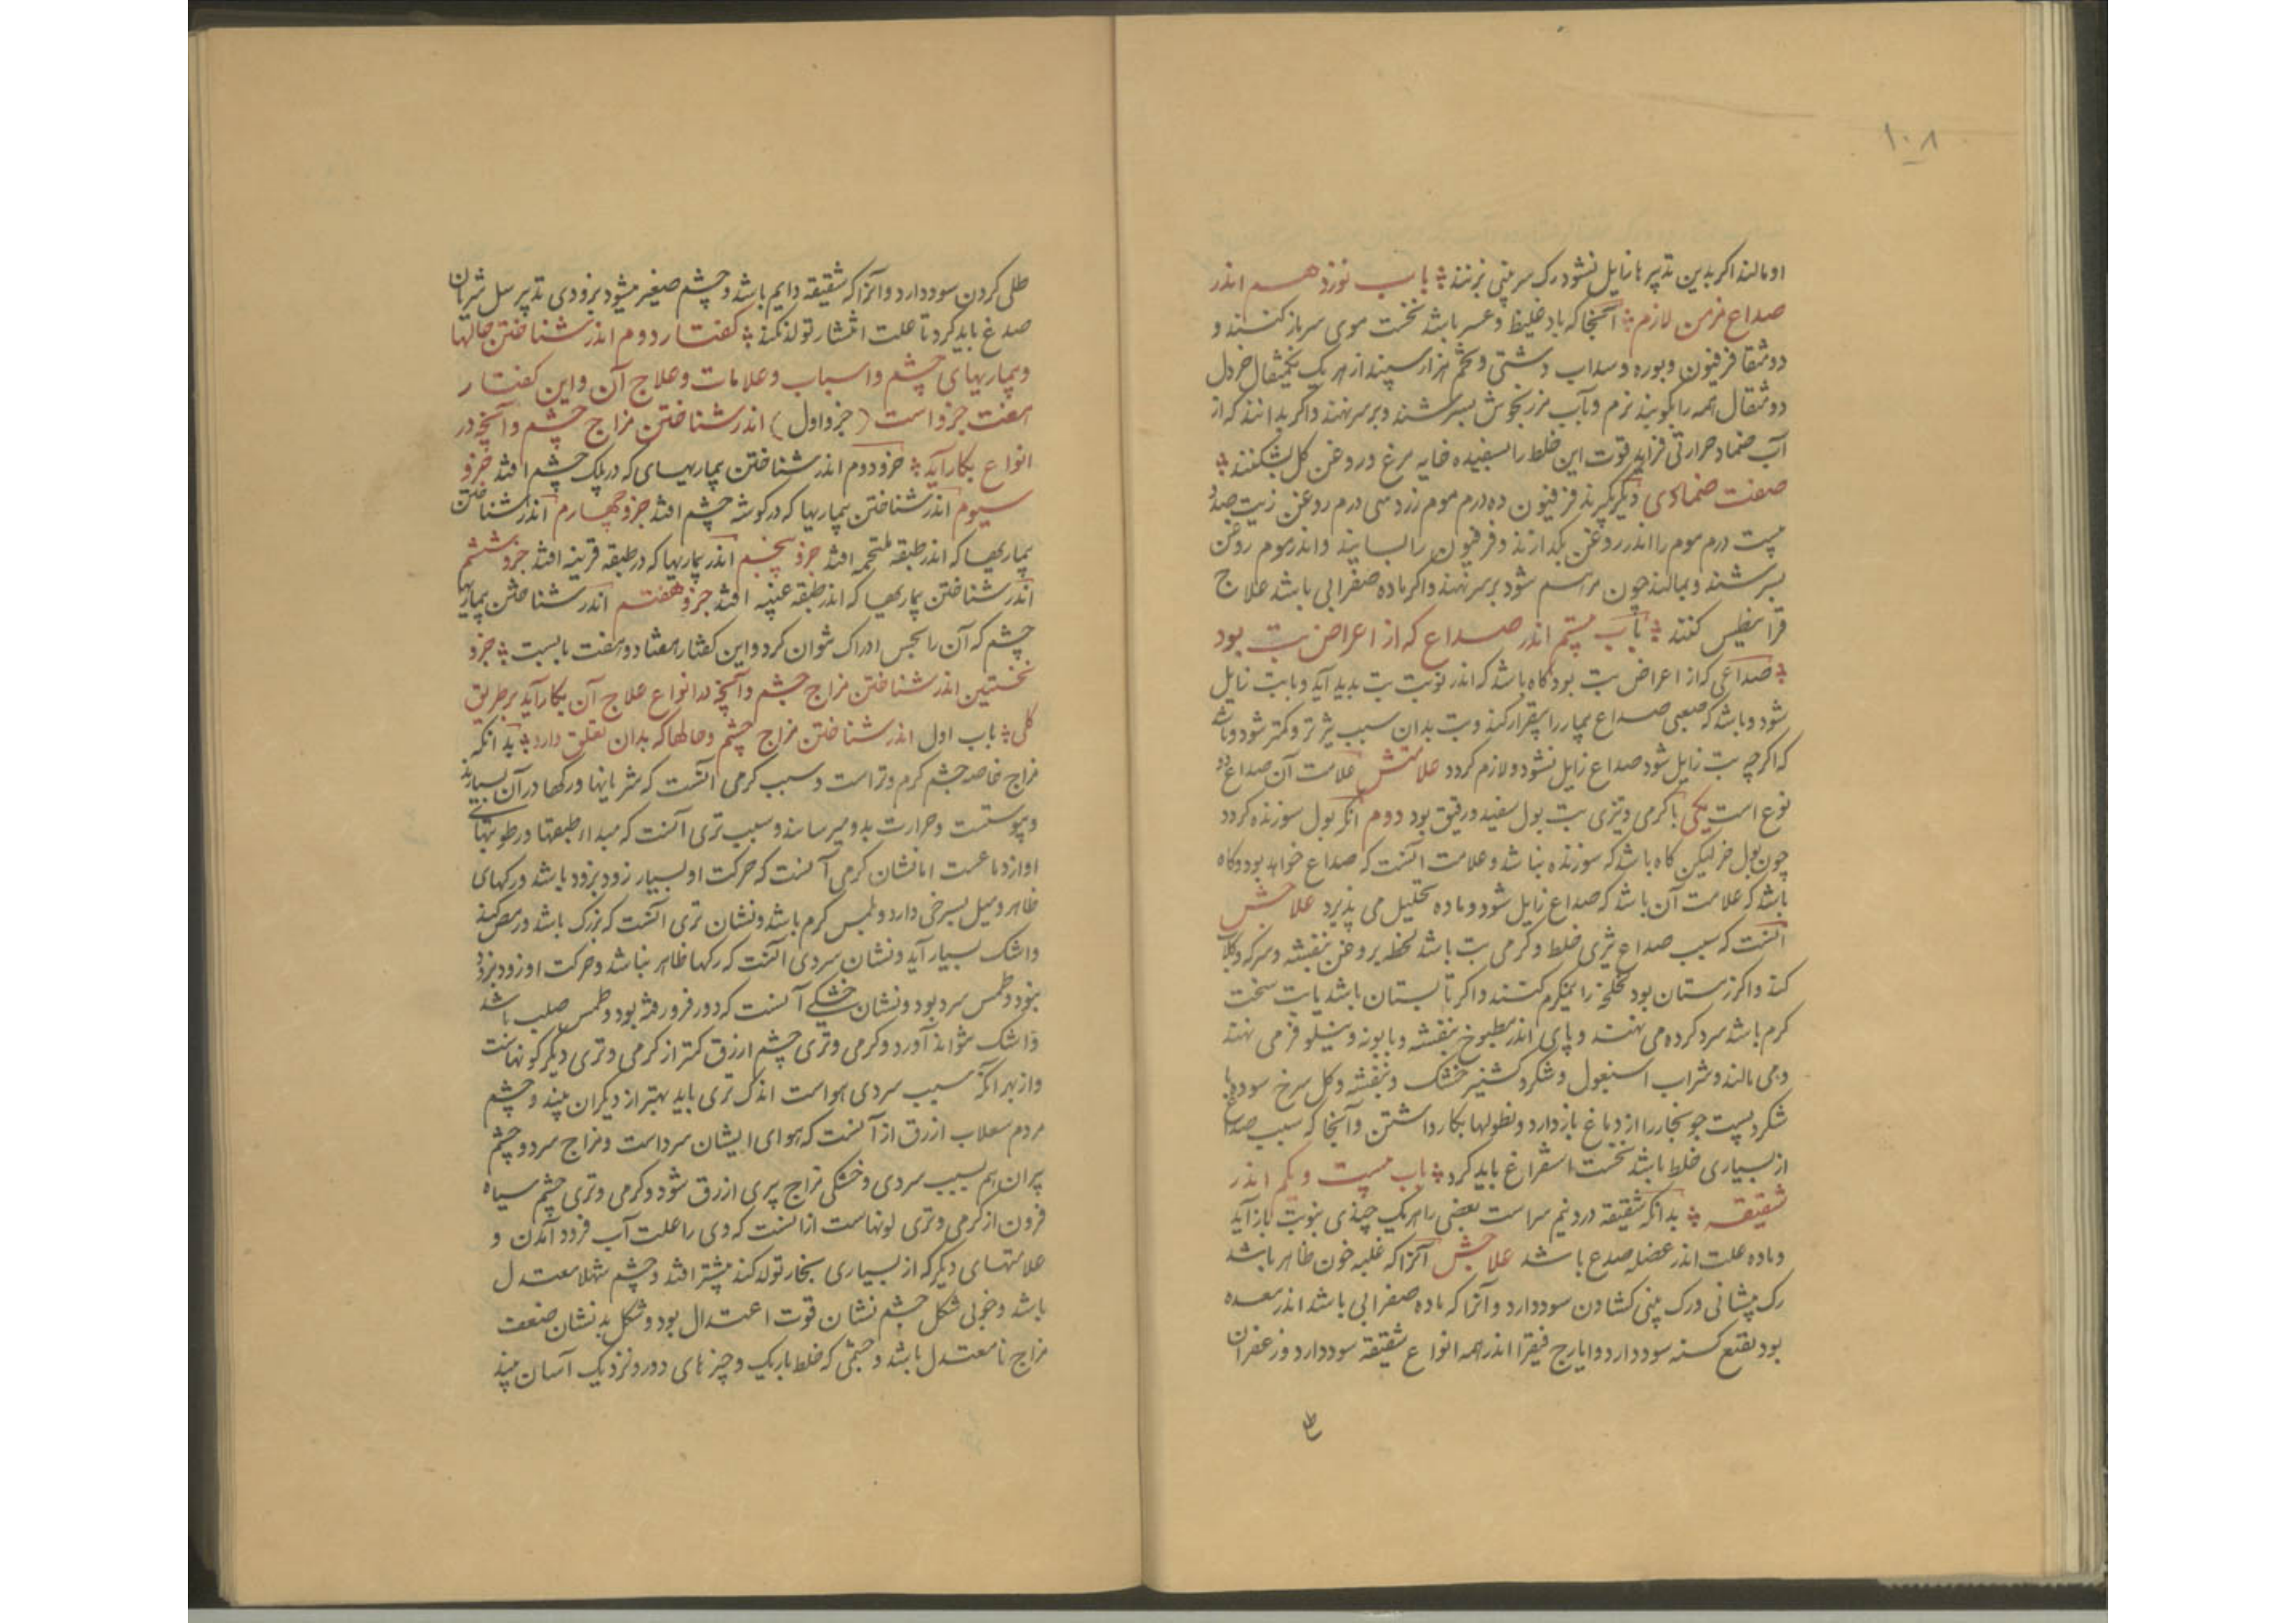 ۱۰۸
او مالند اکر بدین تدبیرها زایل نشود رک سر بینی بزنند باب نوزدهم اندر
صداع مزمن لازم آنجا که باد غلیظ و عسر باشد نخست موی سر باز کنند و
دو مثقا فرفیون و بوره و سداب دشتی و تخم هزار سپند از هر یک یکمثقال خردل
دو مثقال همه را بکوبند نرم و بآب مرزنجوش بسرشند و بر سر نهند و اکر بدانند که از
آب ضماد حرارتی فزاید قوت این خلط را بسفیده خایه مرغ و روغن کل بشکنند
صفت ضمادی دیکر بکیرند فرفیون ده درم موم زرد سی درم روغن زیت صد و
بیست درم موم را اندر روغن بکدازند و فرفیون را بسایند و اندر موم روغن
بسرشند و بمالند چون مرهم شود بر سر نهند و اکر ماده صفرایی باشد علاج
قرانیطس کنند باب بیستم اندر صداع که از اعراض تب بود
صداعی که از اعراض تب بود کاه باشد که اندر نوبت تب پدید آید و با تب زایل
شود و باشد که صعبی صداع بیمار را بیقرار کند و تب بدان سبب تیزتر و کمتر شود و باشد
که اکرچه تب زایل شود صداع زایل نشود و لازم کردد علامتش علامت آن صداع دو
نوع است یکی با کرمی و تیزی تب بول سفید و رقیق بود دوم آنکه بول سوزنده کردد
چون بول خر لیکن کاه باشد که سوزنده نباشد و علامت آنست که صداع خواهد بود و کاه
باشد که علامت آن باشد که صداع زایل شود و ماده تحلیل می پذیرد علاجش
آنست که سبب صداع تیزی خلط و کرمی تب باشد لخلخه بروغن بنفشه و سرکه و کلاب
کند و اکر زمستان بود لخلخه را نیمکرم کنند و اکر تابستان باشد یا تب سخت
کرم باشد سرد کرده می نهند و پای اندر مطبوخ بنفشه و بابونه و نیلوفر می نهند
و می مالند و شراب اسبغول و شکر و کشنیز خشک و بنفشه و کل سرخ سوده با
شکر و پست جو بخار را از دماغ باز دارد و نطولها بکار داشتن و آنجا که سبب صداع
از بسیاری خلط باشد نخست استفراغ باید کرد باب بیست و یکم اندر
شقیقه بدانکه شقیقه درد نیم سر است بعضی را هر یک چندی بنوبت باز آید
و ماده علت اندر عضله صدع باشد علاجش آنرا که غلبه خون ظاهر باشد
رک پیشانی و رک بینی کشادن سود دارد و آنرا که ماده صفرایی باشد اندر معده
بود نقیع کسنه سود دارد و ایارج فیقرا اندر همه انواع شقیقه سود دارد و زعفران
طلی کردن سود دارد و آنرا که شقیقه دایم باشد و چشم صغیر میشود بزودی تدبیر سل شریان
صدغ باید کرد تا علت انتشار تولد نکند کفتار دوم اندر شناختن حالها
و بیماریهای چشم و اسباب و علامات و علاج آن و این کفتار
هفت جزو است (جزو اول) اندر شناختن مزاج چشم و آنچه در
انواع بکار آید جزو دوم اندر شناختن بیماریهای که در پلک چشم افتد جزو
سیوم اندر شناختن بیماریها که در کوشه چشم افتد جزو چهارم اندر شناختن
بیماریها که اندر طبقه ملتحمه افتد جزو پنجم اندر بیماریها که در طبقه قرینه افتد جزو ششم
اندر شناختن بیماریها که اندر طبقه عنبیه افتد جزو هفتم اندر شناختن بیماریها
چشم که آن را بحس ادراک نتوان کرد و این کفتار هفتاد و هفت بابست جزو
نخستین اندر شناختن مزاج چشم و آنچه در انواع علاج آن بکار آید بر طریق
کلی باب اول اندر شناختن مزاج چشم و حالها که بدان تعلق دارد بدانکه
مزاج خاصه چشم کرم و تر است و سبب کرمی آنست که شریانها و رکها در آن بسیارند
و پیوستست و حرارت بدو میرسانند و سبب تری آنست که مبداء طبقتها و رطوبتهای
او از دماغست اما نشان کرمی آنست که حرکت او بسیار زود بزود باشد و رکهای
ظاهر و میل بسرخی دارد و لمس کرم باشد و نشان تری آنست که بزرک باشد و رمص کند
و اشک بسیار آید و نشان سردی آنست که رکها ظاهر نباشد و حرکت او زود بزود
نبود و لمس سرد بود و نشان خشکی آنست که دور فرو رفته بود و لمس صلب باشد
و اشک نتواند آورد و کرمی و تری چشم ازرق کمتر از کرمی و تری دیکر کونهاست
و از بهر آنکه سبب سردی هواست اندک تری باید بهتر از دیکران بیند و چشم
مردم سقلاب ازرق از آنست که هوای ایشان سرد است و مزاج سرد و چشم
پیران هم بسبب سردی و خشکی مزاج پیری ازرق شود و کرمی و تری چشم سیاه
فزون از کرمی و تری لونهاست از آنست که وی را علت آب فرود آمدن و
علامتهای دیکر که از بسیاری بخار تولد کند بیشتر افتد و چشم شهلا معتدل
باشد و خوبی شکل چشم نشان قوت اعتدال بود و شکل بد نشان ضعف
مزاج نامعتدل باشد و چشمی که خلط باریک و چیزهای دور و نزدیک آسان بیند